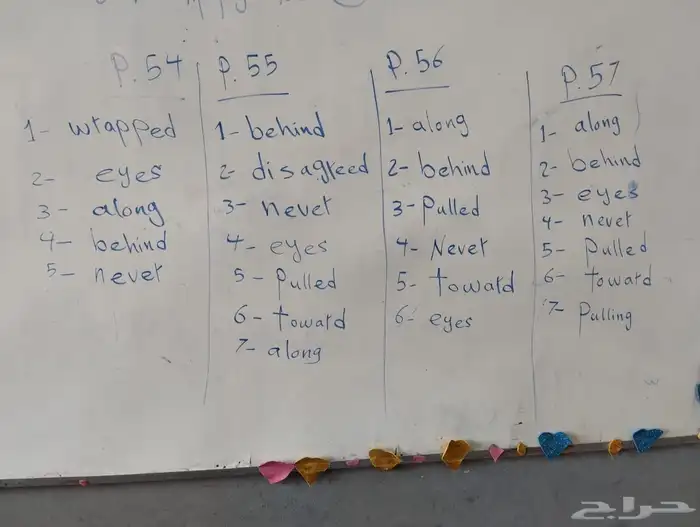 P.54
1- wrapped
2- eyes
3- along
4- behind
5- never
P.55
1- behind
2- disagreed
3- never
4- eyes
5- Pulled
6- toward
7- along
P.56
1- along
2- behind
3- Pulled
4- Never
5- toward
6- eyes
P.57
1- along
2- behind
3- eyes
4- never
5- Pulled
6- toward
7- Pulling
حراج